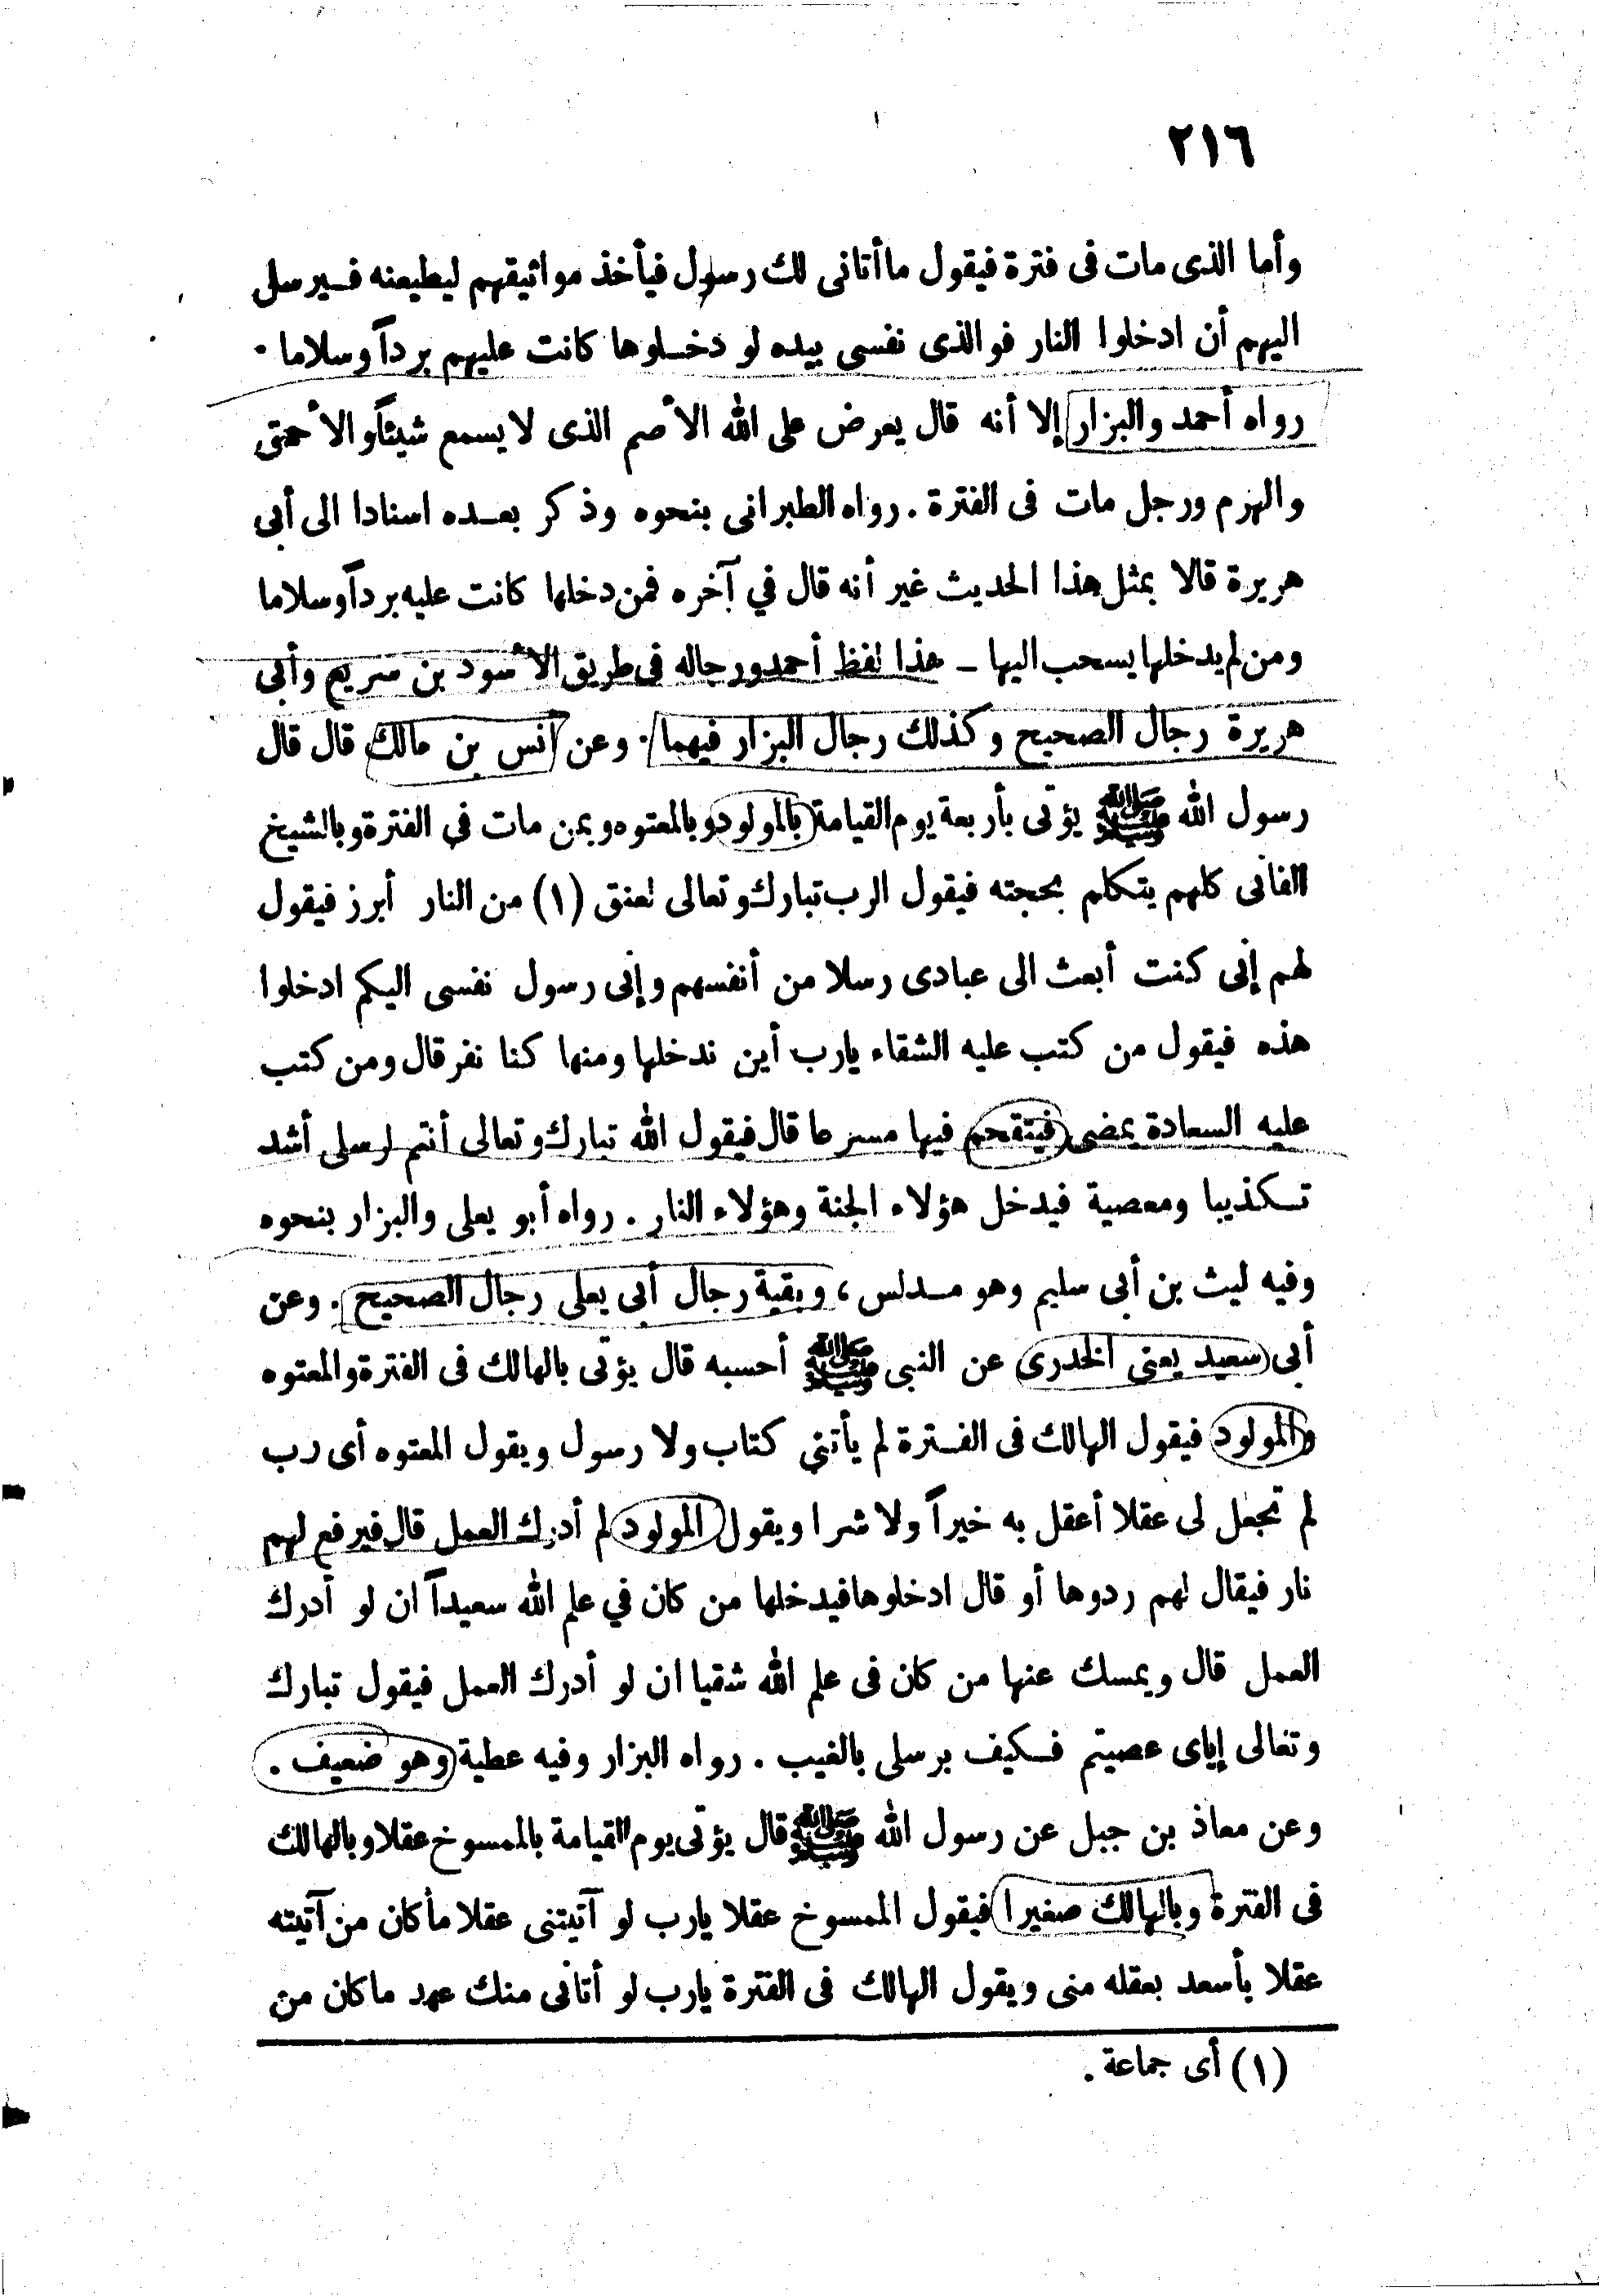 ٢١٦
وأما الذى مات فى فترة فيقول ماأتانى لك رسول فيأخذ مواثيقهم ليطيعنه فسيرسل
اليهم أن ادخلوا النار فوالذى نفسى بيده لو دخلوها كانت عليهم برداً وسلاما ٠
رواه أحمد والبزار إلا أنه قال يعرض على الله الأصم الذى لا يسمع شيئاً والأحمق
والهرم ورجل مات فى الفترة . رواه الطبرانى بنحوه وذكر بعده اسنادا الى أبى
هريرة قالا بمثل هذا الحديث غير أنه قال في آخره فمن دخلها كانت عليه برداً وسلاما
ومن لم يدخلها يسحب اليها – هذا لفظ أحمد ورجاله فى طريق الأسود بن سريع وأبى
هريرة رجال الصحيح وكذلك رجال البزار فيهما . وعن أنس بن مالك قال قال
رسول الله ﷺ يؤتى بأربعة يوم القيامة بالمولود وبالمعتوه وبمن مات في الفترة وبالشيخ
الفانى كلهم يتكلم بحجته فيقول الرب تبارك وتعالى لعنق (١) من النار أبرز فيقول
لهم إنى كنت أبعث الى عبادى رسلا من أنفسهم وإنى رسول نفسى اليكم ادخلوا
هذه فيقول من كتب عليه الشقاء يارب أين ندخلها ومنها كنا نفر قال ومن كتب
عليه السعادة يمضى فيتقحم فيها مسرعا قال فيقول الله تبارك وتعالى أنتم لرسلى أشد
تكذيبا ومعصية فيدخل هؤلاء الجنة وهؤلاء النار . رواه أبو يعلى والبزار بنحوه
وفيه ليث بن أبى سليم وهو مدلس ، وبقية رجال أبى يعلى رجال الصحيح . وعن
أبى سعيد يعنى الخدرى عن النبى ﷺ أحسبه قال يؤتى بالهالك فى الفترة والمعتوه
والمولود فيقول الهالك فى الفترة لم يأتني كتاب ولا رسول ويقول المعتوه أى رب
لم تجعل لى عقلا أعقل به خيراً ولا شرا ويقول المولود لم أدرك العمل قال فيرفع لهم
نار فيقال لهم ردوها أو قال ادخلوها فيدخلها من كان في علم الله سعيداً ان لو أدرك
العمل قال ويمسك عنها من كان فى علم الله شقيا ان لو أدرك العمل فيقول تبارك
وتعالى إياى عصيتم فكيف برسلى بالغيب . رواه البزار وفيه عطية وهو ضعيف .
وعن معاذ بن جبل عن رسول الله ﷺ قال يؤتى يوم القيامة بالممسوخ عقلا وبالهالك
فى الفترة وبالهالك صغيرا فيقول الممسوخ عقلا يارب لو آتيتنى عقلا ما كان من آتيته
عقلا بأسعد بعقله منى ويقول الهالك فى الفترة يارب لو أتانى منك عهد ما كان من
(١) أى جماعة .